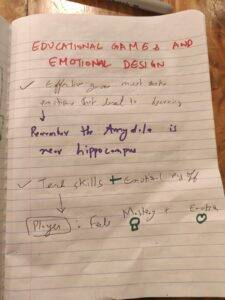 EDUCATIONAL GAMES AND
EMOTIONAL DESIGN
✓ Effective games must
emotions that lead to learning
↓
Remember the Amygdala is
near hippocampus
✓ Teach skills + Emotional
↓
Player : Feels Mastery +